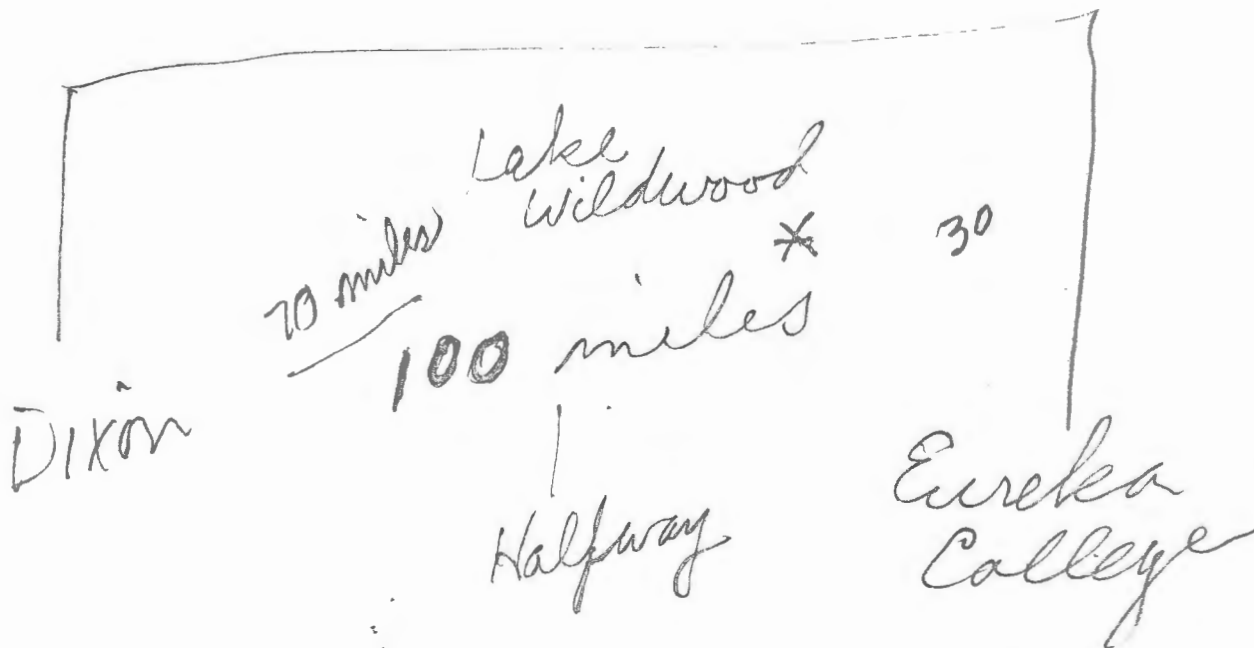 Lake
Wildwood
70 miles
* 30
100 miles
Dixon
Halfway
Eureka
College